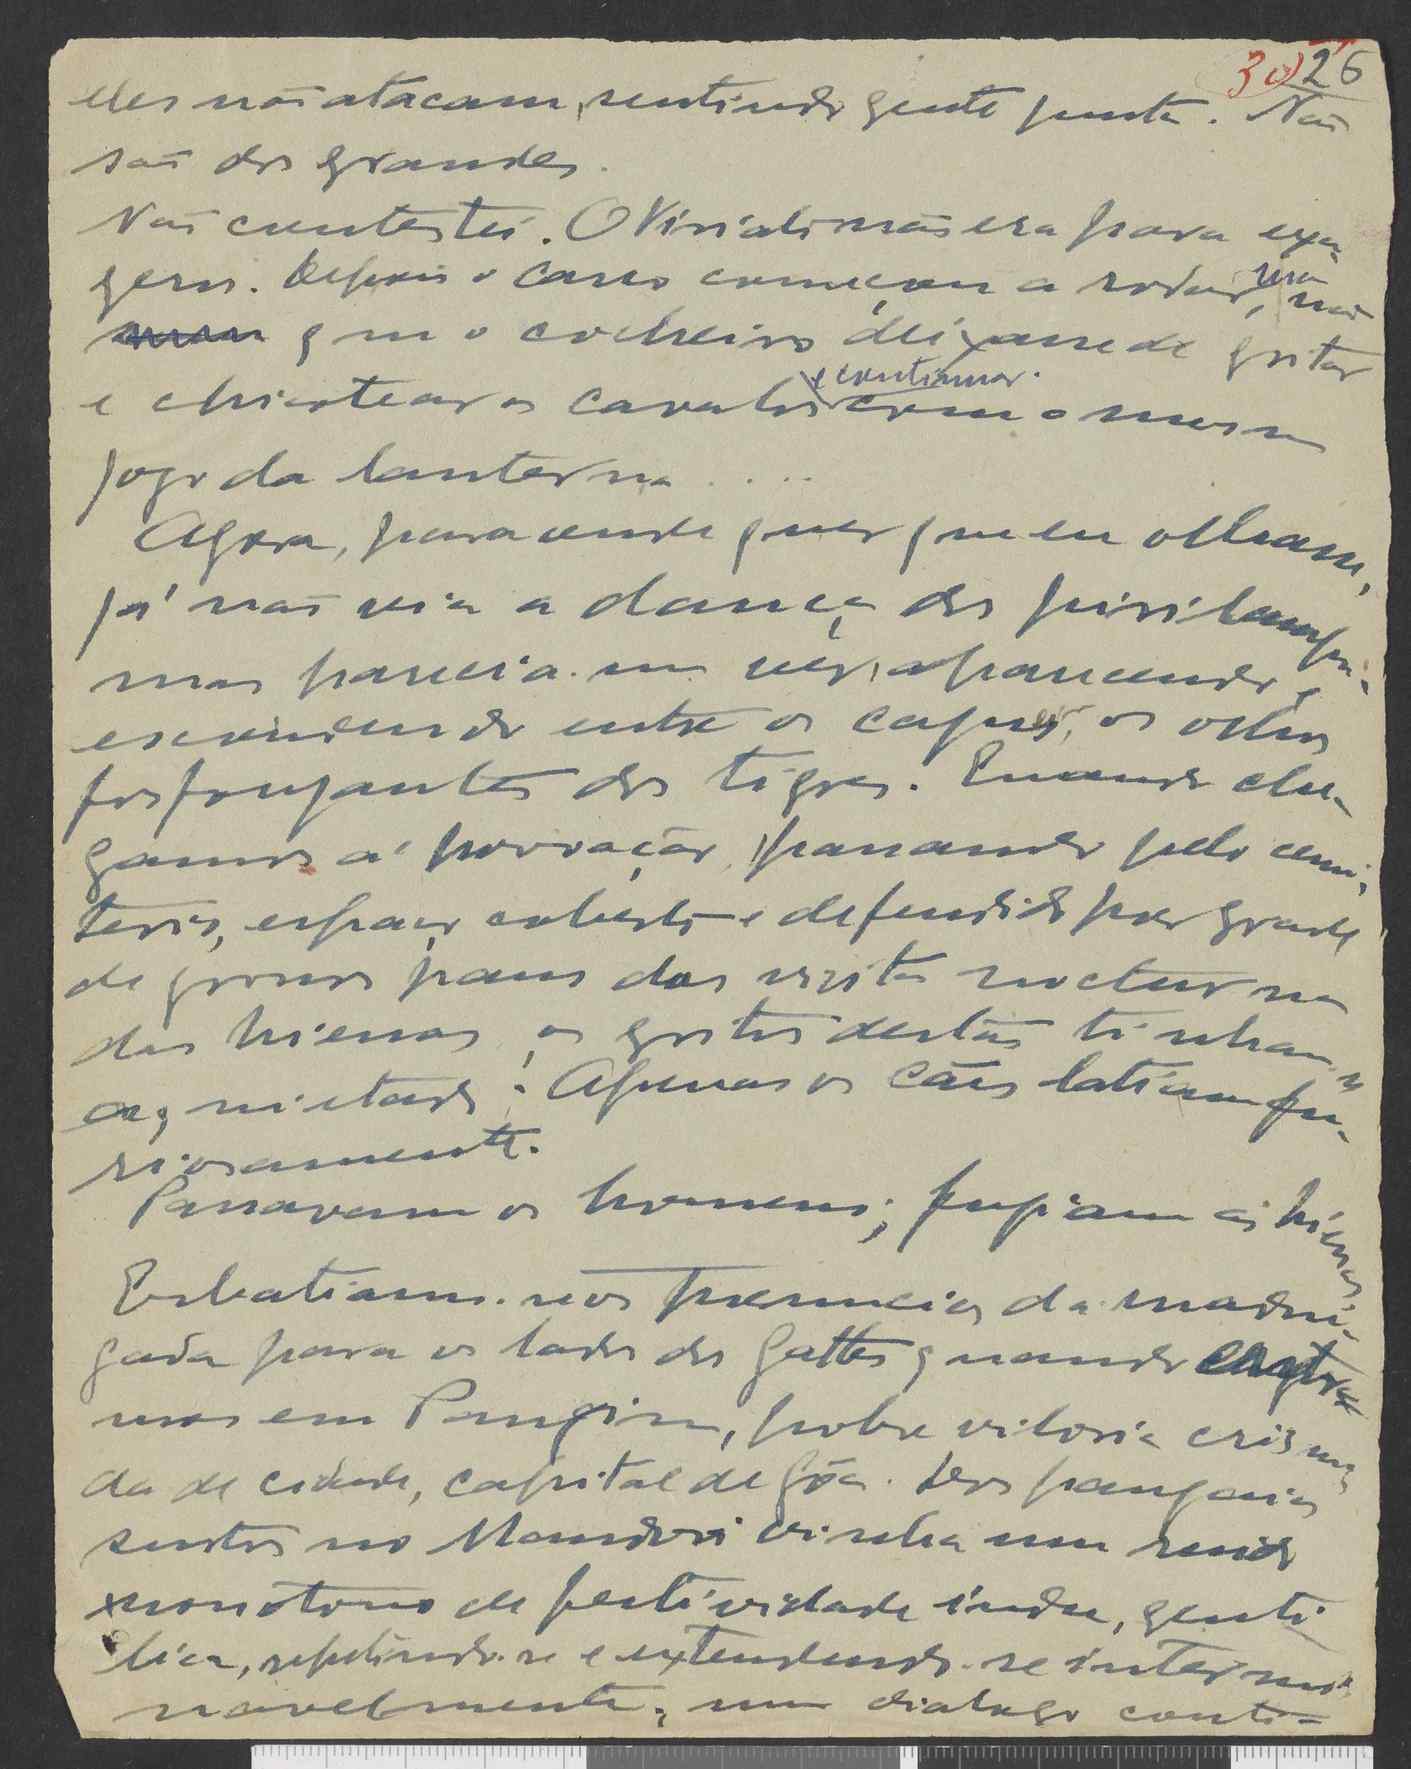 30) 26
eles não atacam, sentindo gente junta. Não
são dos grandes.
Não contestei. O Viriato não era para exa-
geros. Depois o carro começou a rodar, sem
que o cocheiro deixasse de gritar
e chicotear os cavalos e continuar com o mesmo
jogo da lanterna ....
Agora, para onde quer que eu olhasse,
já não via a dança dos pirilampos,
mas parecia-me ver, aparecendo e
escondendo entre os capins, os olhos
fosforejantes dos tigres. Quando che-
gamos á povoação, passando pelo cemi-
terio, espaço coberto e defendido por grade
de grossos paus das visitas nocturnas
das hienas, os gritos destas tinham
aquietado. Apenas os cães latiam fu-
riosamente.
Passavam os homens; fugiam as hienas
Esbatiam-se os prenuncios da madru-
gada para os lados dos Gattes quando entra-
mos em Pangim, pobre viloria crisma-
da de cidade, capital de Gôa. Dos pangaios
surtos no Mandovi vinha um ruido
monótono de festividade indu, genti-
lica, repetindo-se e extendendo-se intermi-
navelmente, num dialogo conti-